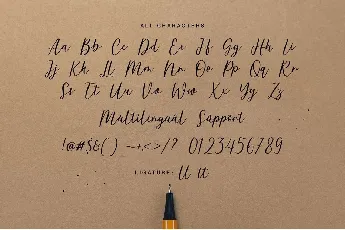 ALL CHARACTERS
Aa Bb Cc Dd Ee Ff Gg Hh Ii
Jj Kk Ll Mm Nn Oo Pp Qq Rr
Ss Tt Uu Vv Ww Xx Yy Zz
Multilingual Support
!@#$&( ) -+,<>/? 0123456789
LIGATURE: ll tt